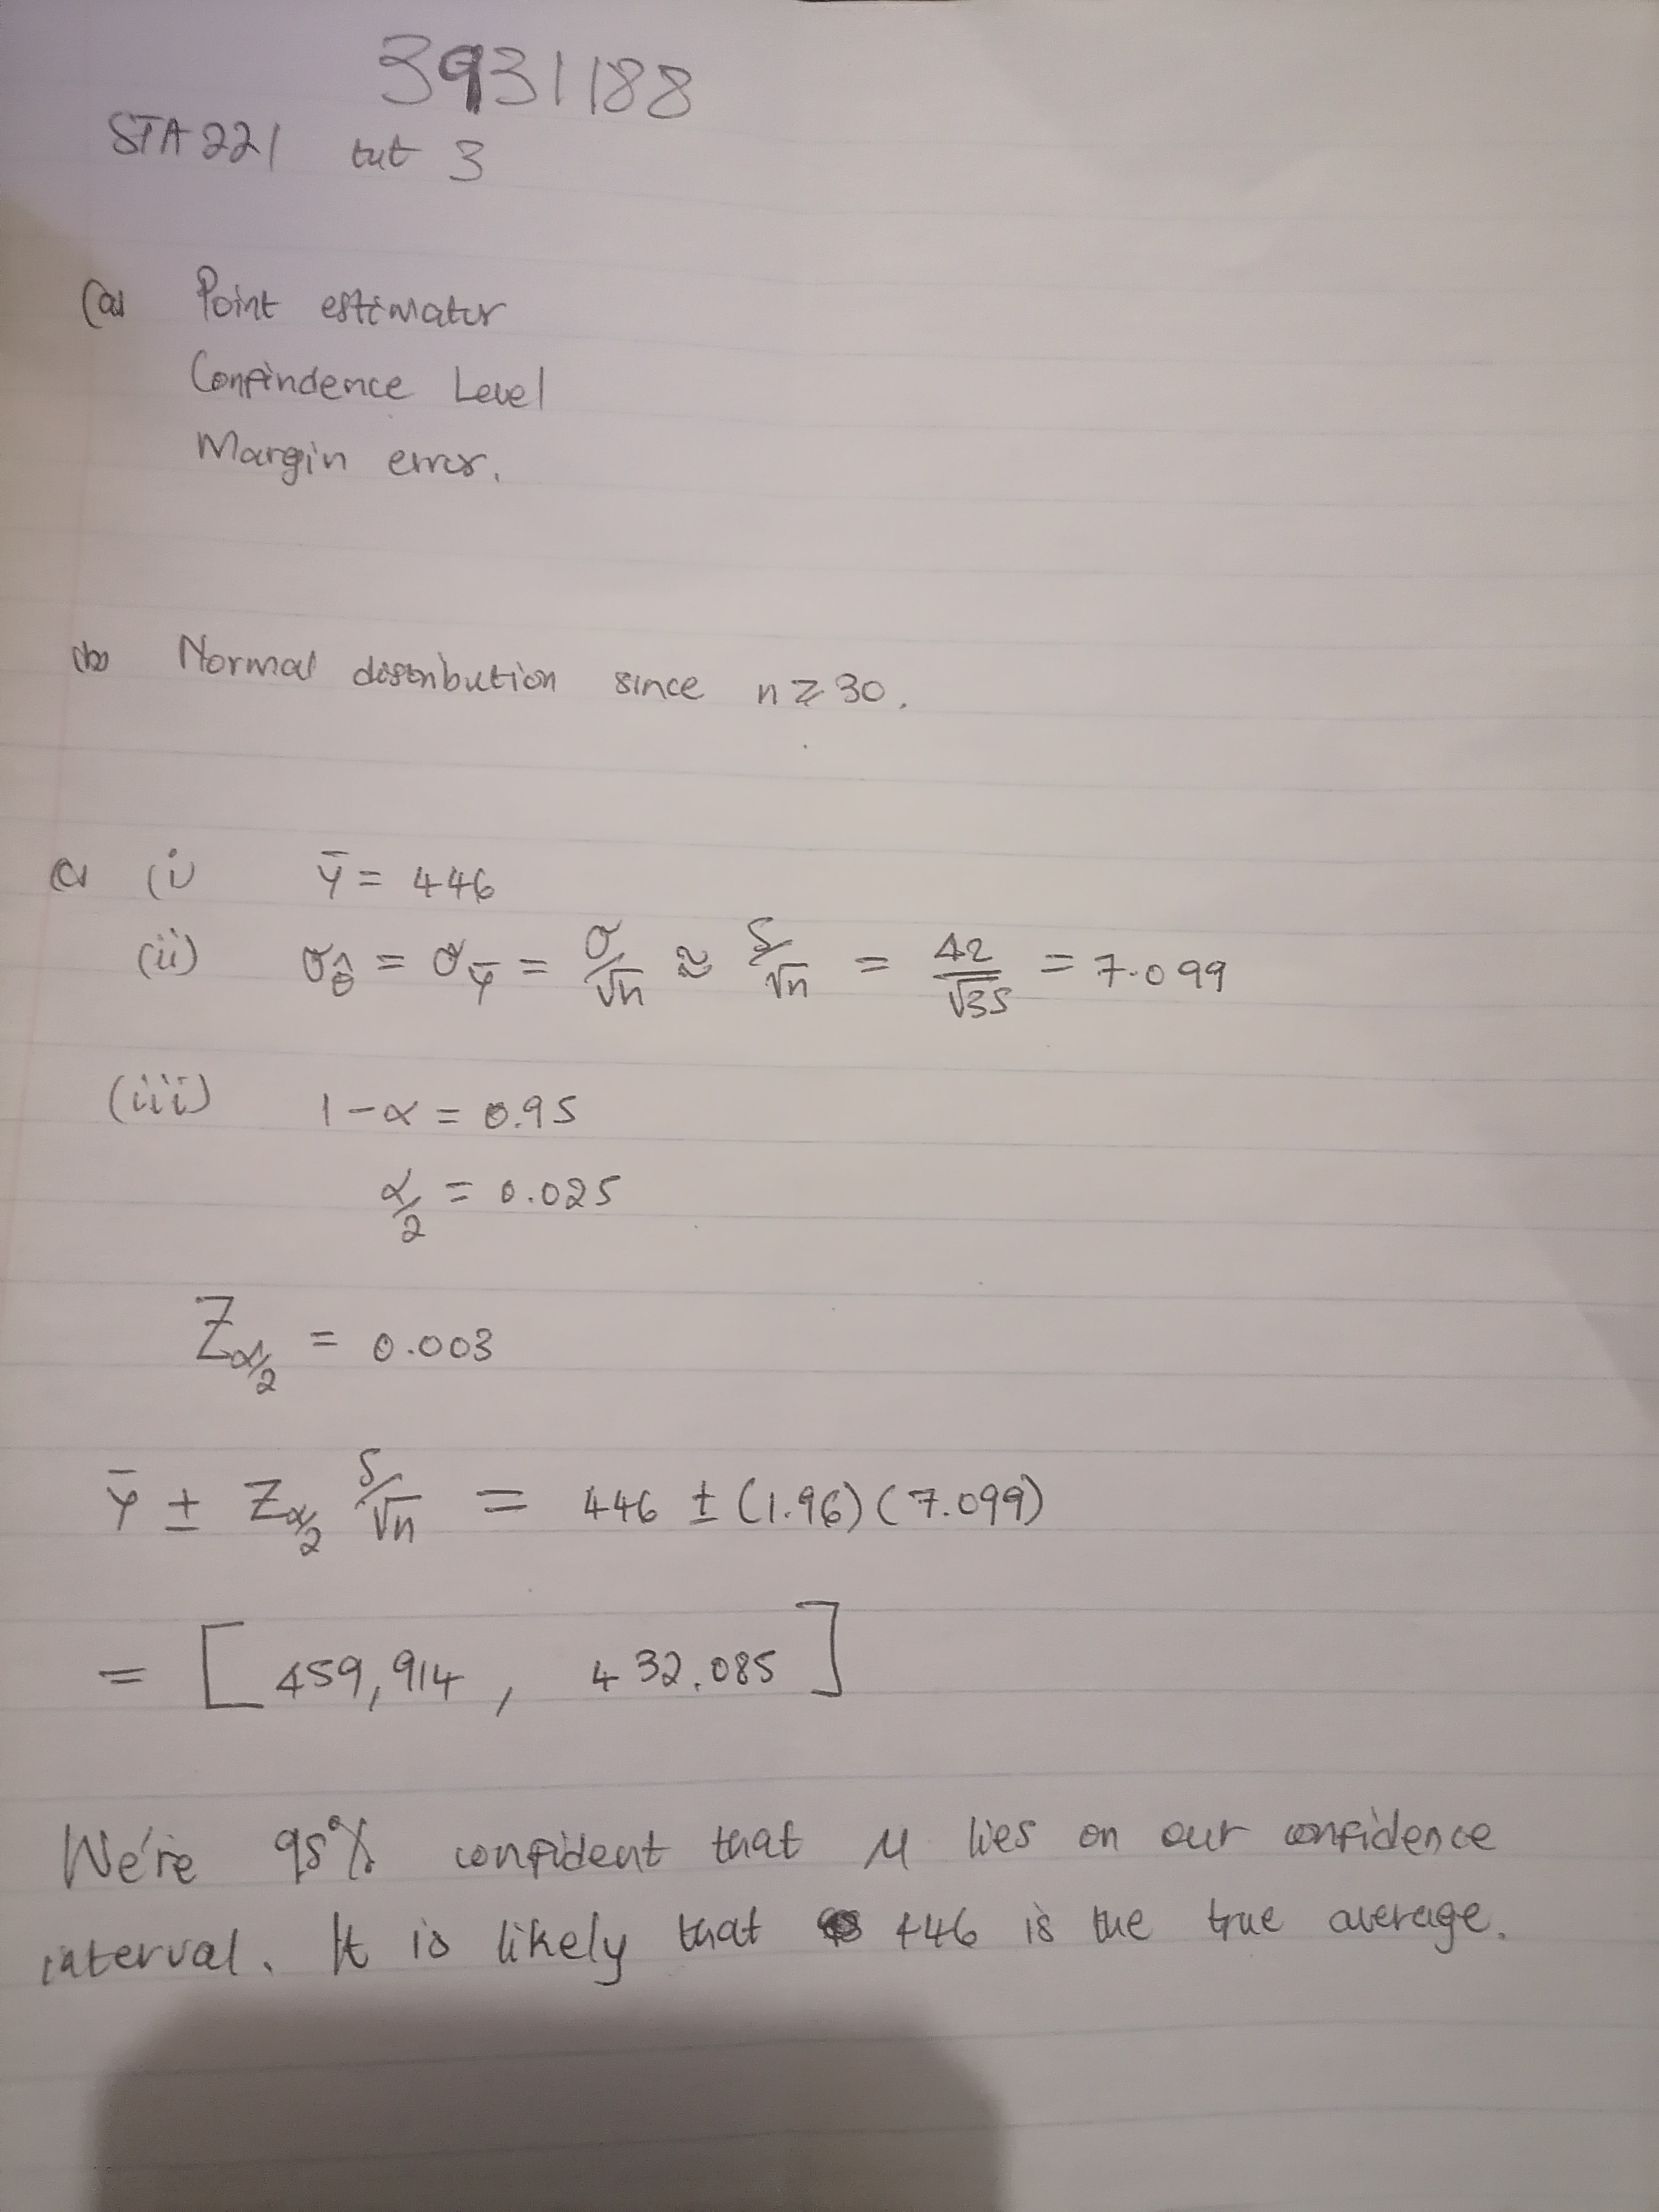 3931188
STA221 tut 3
(a) Point estimator
Confindence Level
Margin error.
(b) Normal distribution since n ≥ 30.
(c) (i) ȳ = 446
(ii) σ_θ̂ = σ_ȳ = σ/√n ≈ S/√n = 42/√35 = 7.099
(iii) 1 - α = 0.95
α/2 = 0.025
Z_α/2 = 0.003
ȳ ± Z_α/2 S/√n = 446 ± (1.96)(7.099)
= [459,914, 432.085]
We're 95% confident that μ lies on our confidence
interval. It is likely that 446 is the true average.